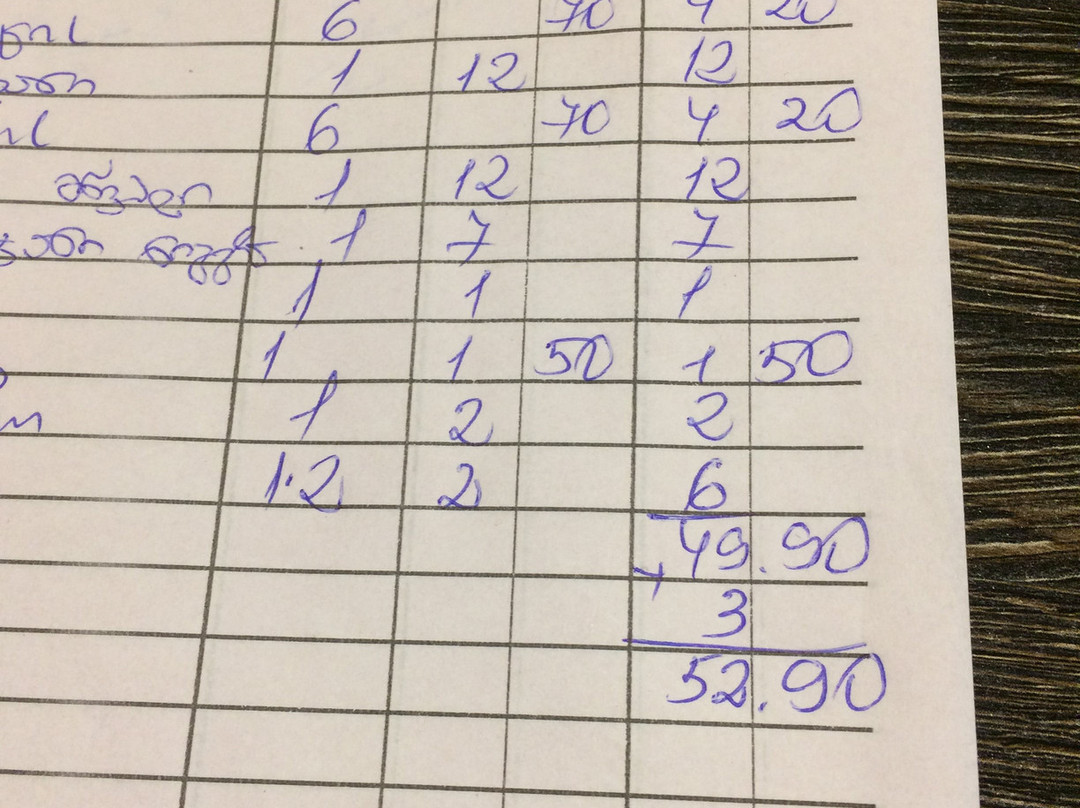 6 70 4 20
1 12 12
6 70 4 20
1 12 12
1 7 7
1 1 1
1 1 50 1 50
1 2 2
1.2 2 6
49.90
+ 3
52.90